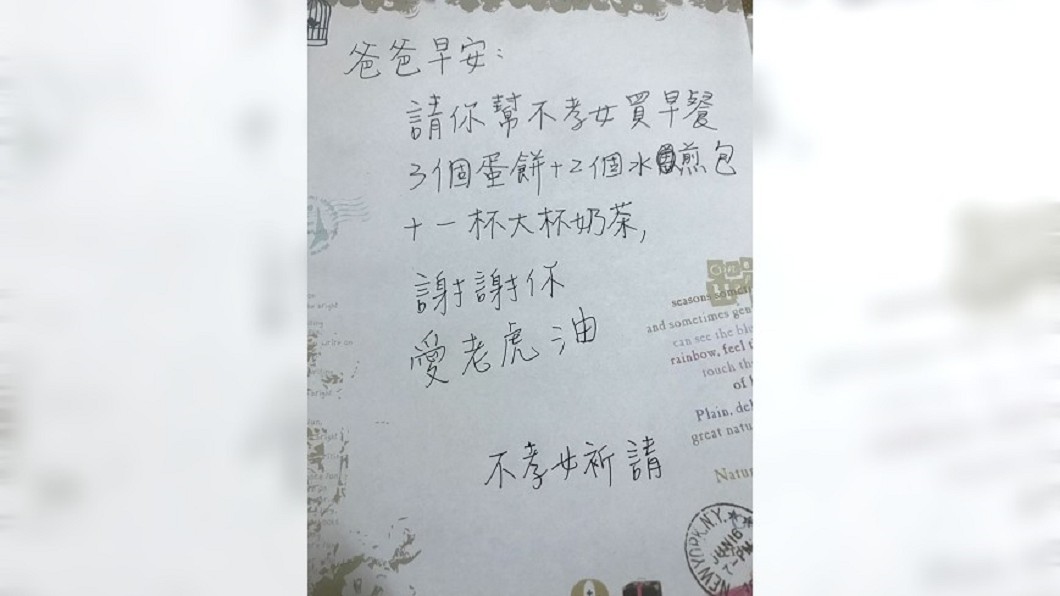 爸爸早安:
請你幫不孝女買早餐
3個蛋餅+2個水煎包
+一杯大杯奶茶,
謝謝你
愛老虎油
不孝女祈請
seasons
and sometimes
can see the
rainbow, feel
touch
of
Plain,
great
NEW YORK, N.Y.
JUN 16
PM